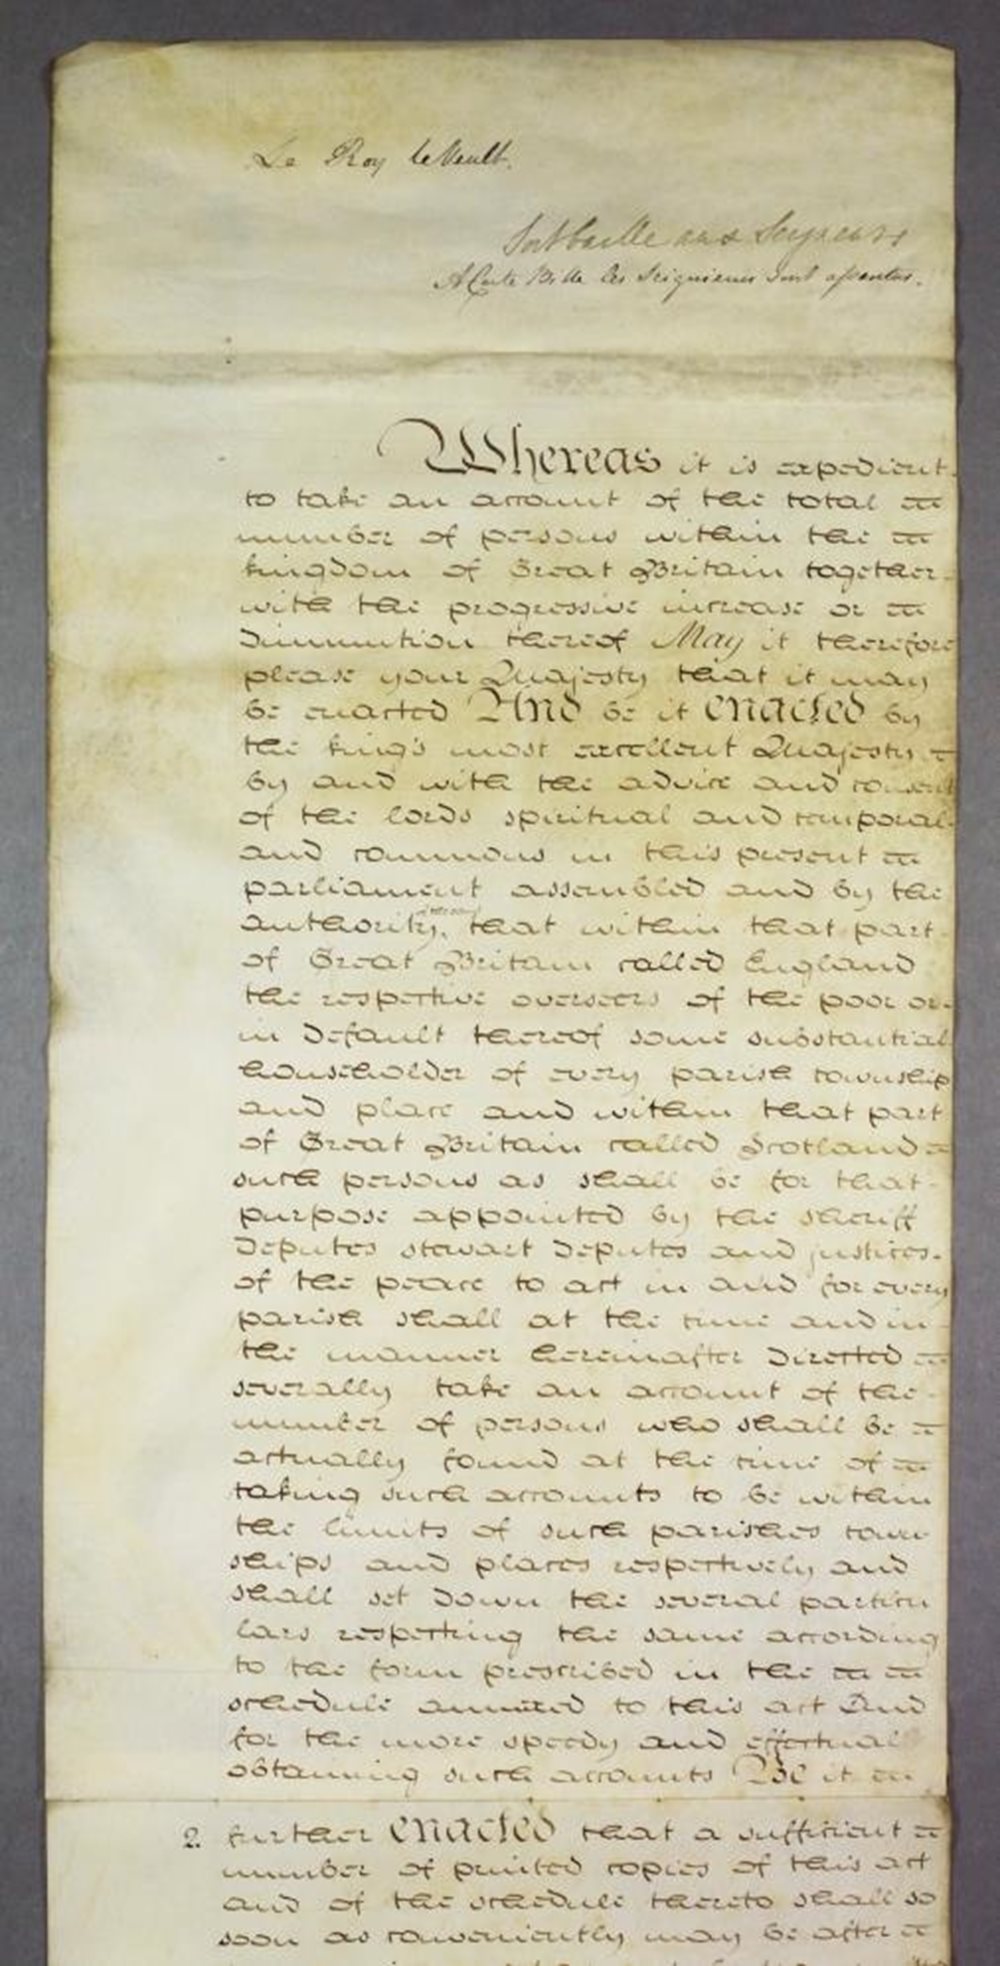 Le Roy le Veult.
Soit baille aux Seigneurs
A Cette Bille les Seigneurs sont assentus.
Whereas it is expedient
to take an account of the total
number of persons within the
kingdom of Great Britain together
with the progressive increase or
diminution thereof May it therefore
please your Majesty that it may
be enacted And be it enacted by
the king's most excellent Majesty
by and with the advice and consent
of the lords spiritual and temporal
and commons in this present
parliament assembled and by the
authority of the same, that within that part
of Great Britain called England
the respective overseers of the poor or
in default thereof some substantial
householder of every parish township
and place and within that part
of Great Britain called Scotland
such persons as shall be for that
purpose appointed by the sheriff
deputes stewart deputes and justices
of the peace to act in and for every
parish shall at the time and in
the manner hereinafter directed
severally take an account of the
number of persons who shall be
actually found at the time of
taking such accounts to be within
the limits of such parishes town
ships and places respectively and
shall set down the several particu
lars respecting the same according
to the form prescribed in the
schedule annexed to this act And
for the more speedy and effectual
obtaining such accounts Be it
2. further enacted that a sufficient
number of printed copies of this act
and of the schedule thereto shall so
soon as conveniently may be after